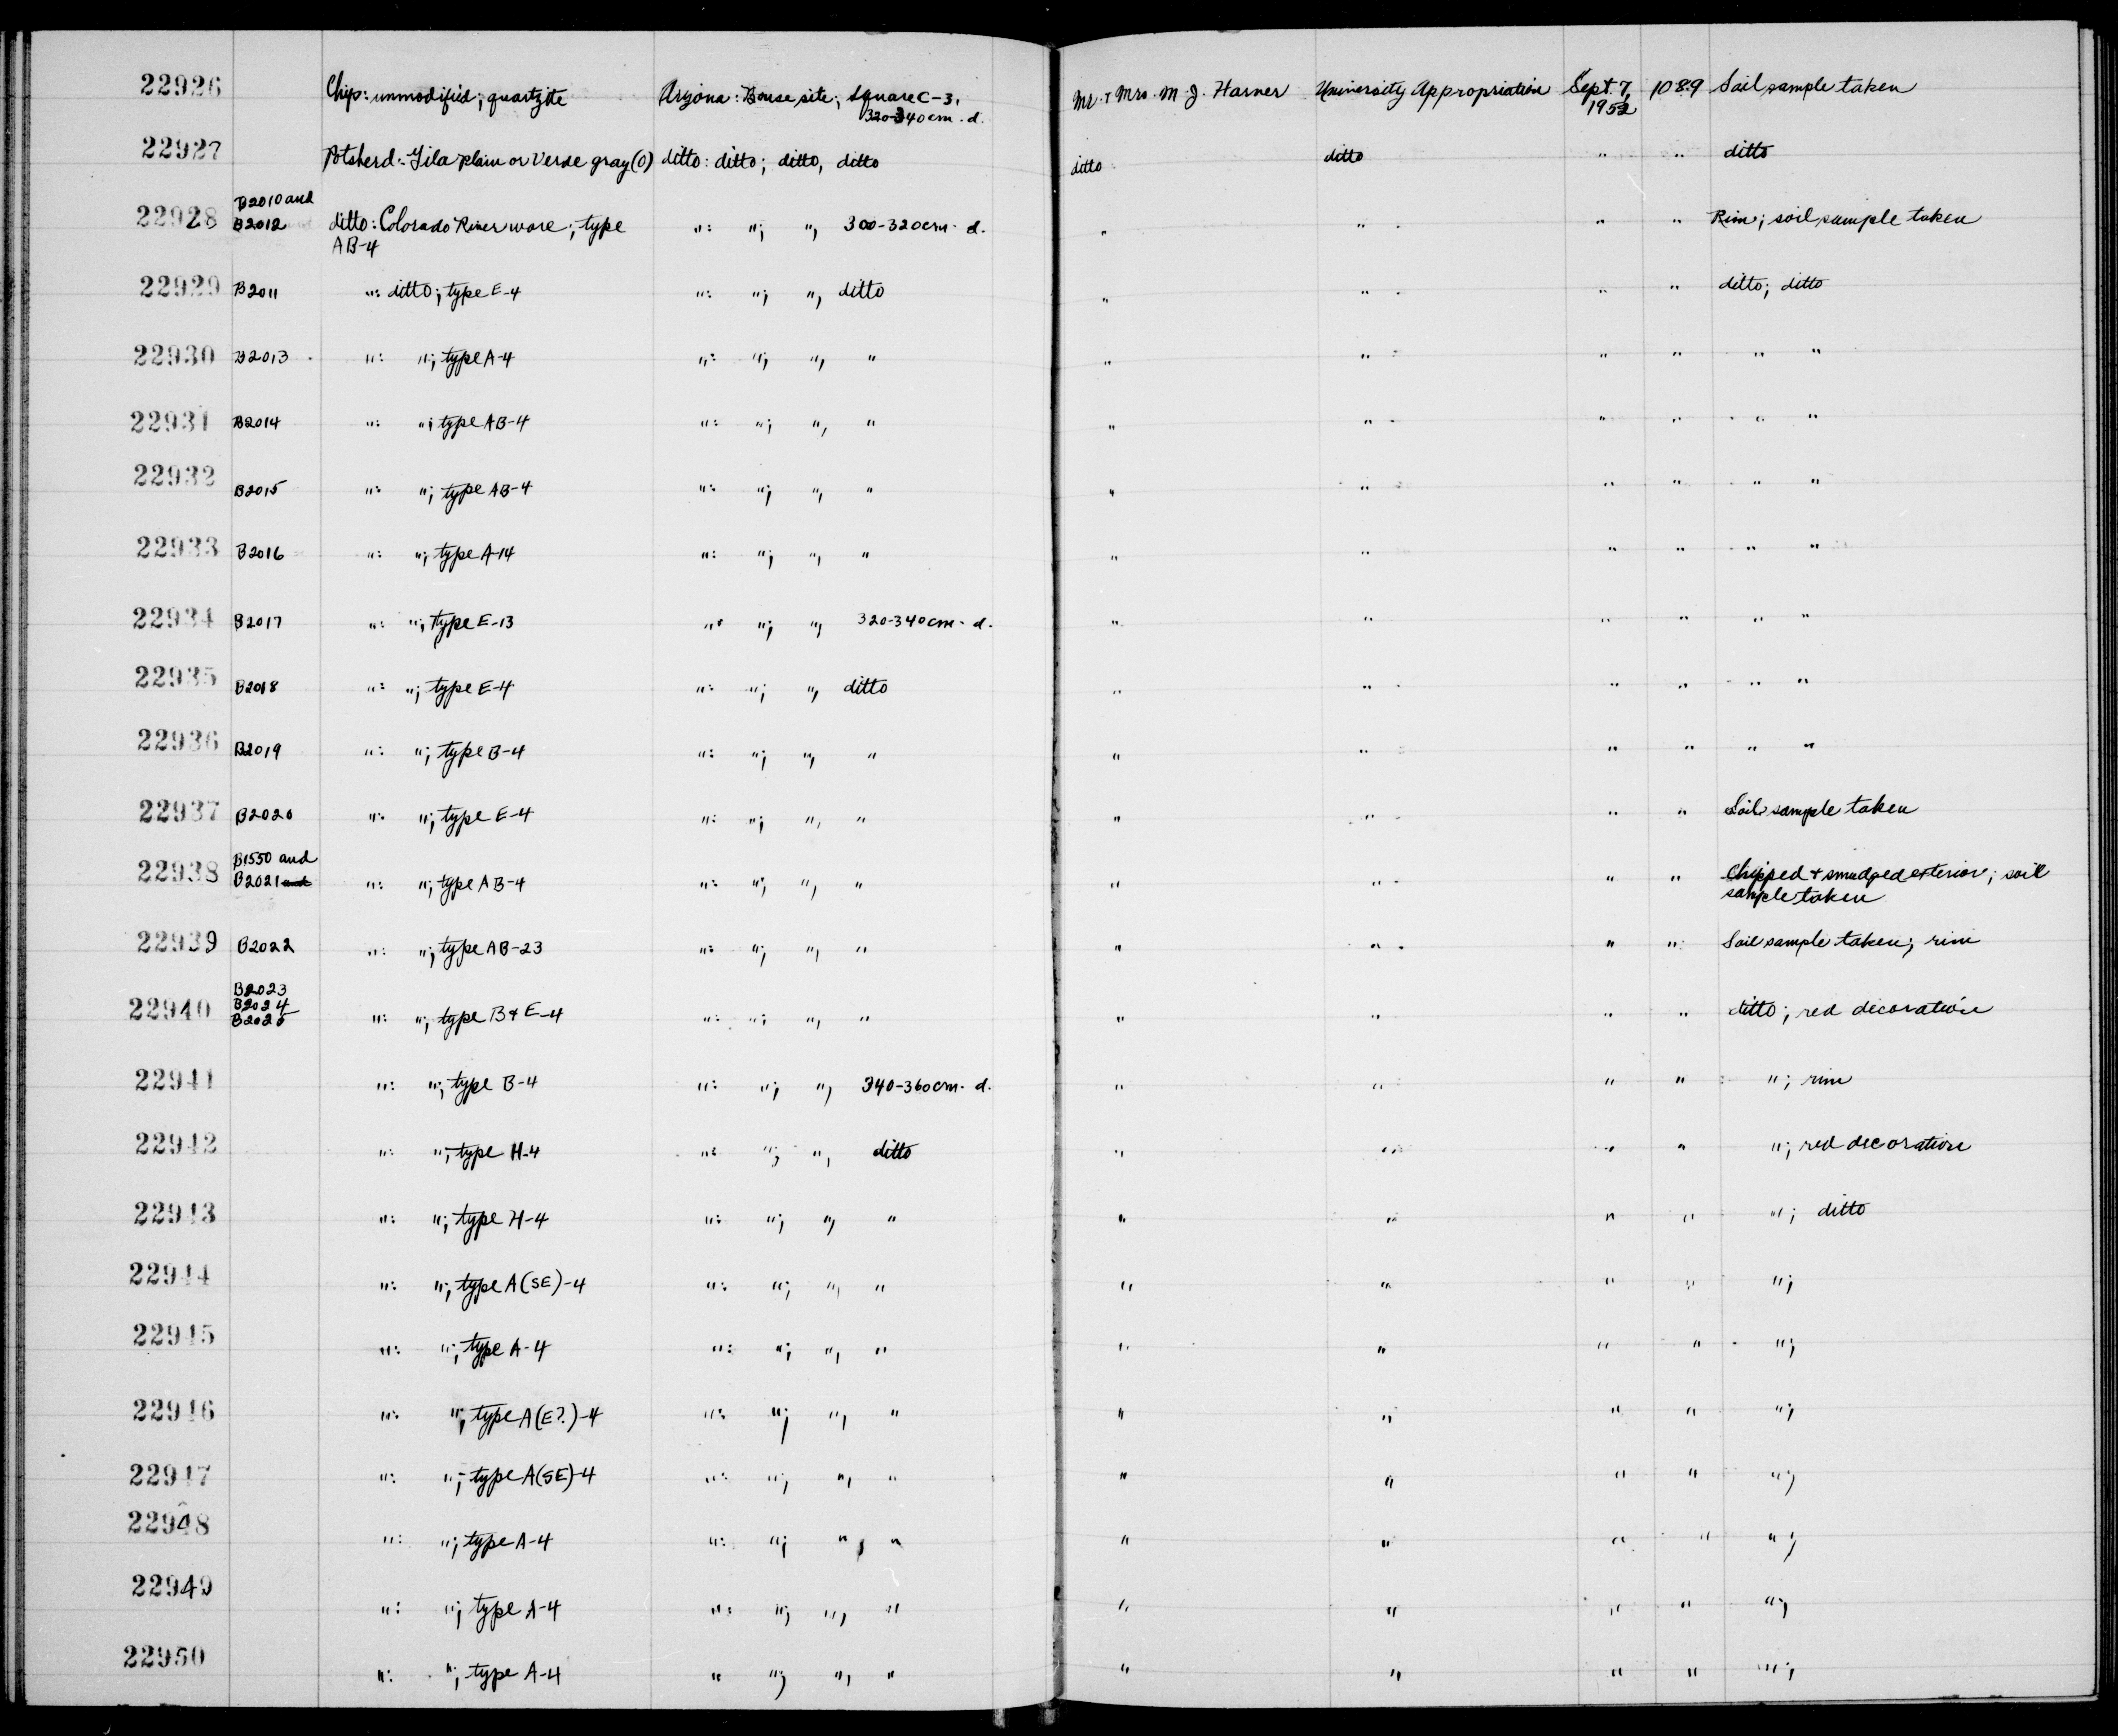 22926 Chip: unmodified; quartzite Arizona: Bouse site; Square C-3, Mr. + Mrs. M. J. Harner University Appropriation Sept. 7, 1089 Soil sample taken
320-340 cm. d. 1952
22927 Potsherd: Gila Plain or Verde gray (O) ditto: ditto; ditto, ditto ditto ditto " " ditto
B2010 and
22928 B2012 ditto: Colorado River ware; type ": "; ", 300-320 cm. d. " " " " Rim; soil sample taken
AB-4
22929 B2011 ": ditto; type E-4 ": "; ", ditto " " " " ditto; ditto
22930 B2013 ": "; type A-4 ": "; ", " " " " " " "
22931 B2014 ": "; type AB-4 ": "; ", " " " " " " "
22932 B2015 ": "; type AB-4 ": "; ", " " " " " " "
22933 B2016 ": "; type A-14 ": "; ", " " " " " " "
22934 B2017 ": "; type E-13 ": "; ", 320-340 cm. d. " " " " " "
22935 B2018 ": "; type E-4 ": "; ", ditto " " " " " "
22936 B2019 ": "; type B-4 ": "; ", " " " " " " "
22937 B2020 ": "; type E-4 ": "; ", " " " " " Soil sample taken
B1550 and
22938 B2021 and ": "; type AB-4 ": "; ", " " " " " Chipped + smudged exterior; soil
sample taken
22939 B2022 ": "; type AB-23 ": "; ", " " " " " Soil sample taken; rim
B2023
B2024
22940 B2025 ": "; type B + E-4 ": "; ", " " " " " ditto; red decoration
22941 ": "; type B-4 ": "; ", 340-360 cm. d. " " " " "; rim
22942 ": "; type H-4 ": "; ", ditto " " " " "; red decoration
22943 ": "; type H-4 ": "; ", " " " " " "; ditto
22944 ": "; type A(SE)-4 ": "; ", " " " " " ";
22945 ": "; type A-4 ": "; ", " " " " " ";
22946 ": "; type A(E?)-4 ": "; ", " " " " " ";
22947 ": "; type A(SE)-4 ": "; ", " " " " " ";
22948 ": "; type A-4 ": "; ", " " " " " ";
22949 ": "; type A-4 ": "; ", " " " " " ";
22950 ": "; type A-4 " "; ", " " " " " ";